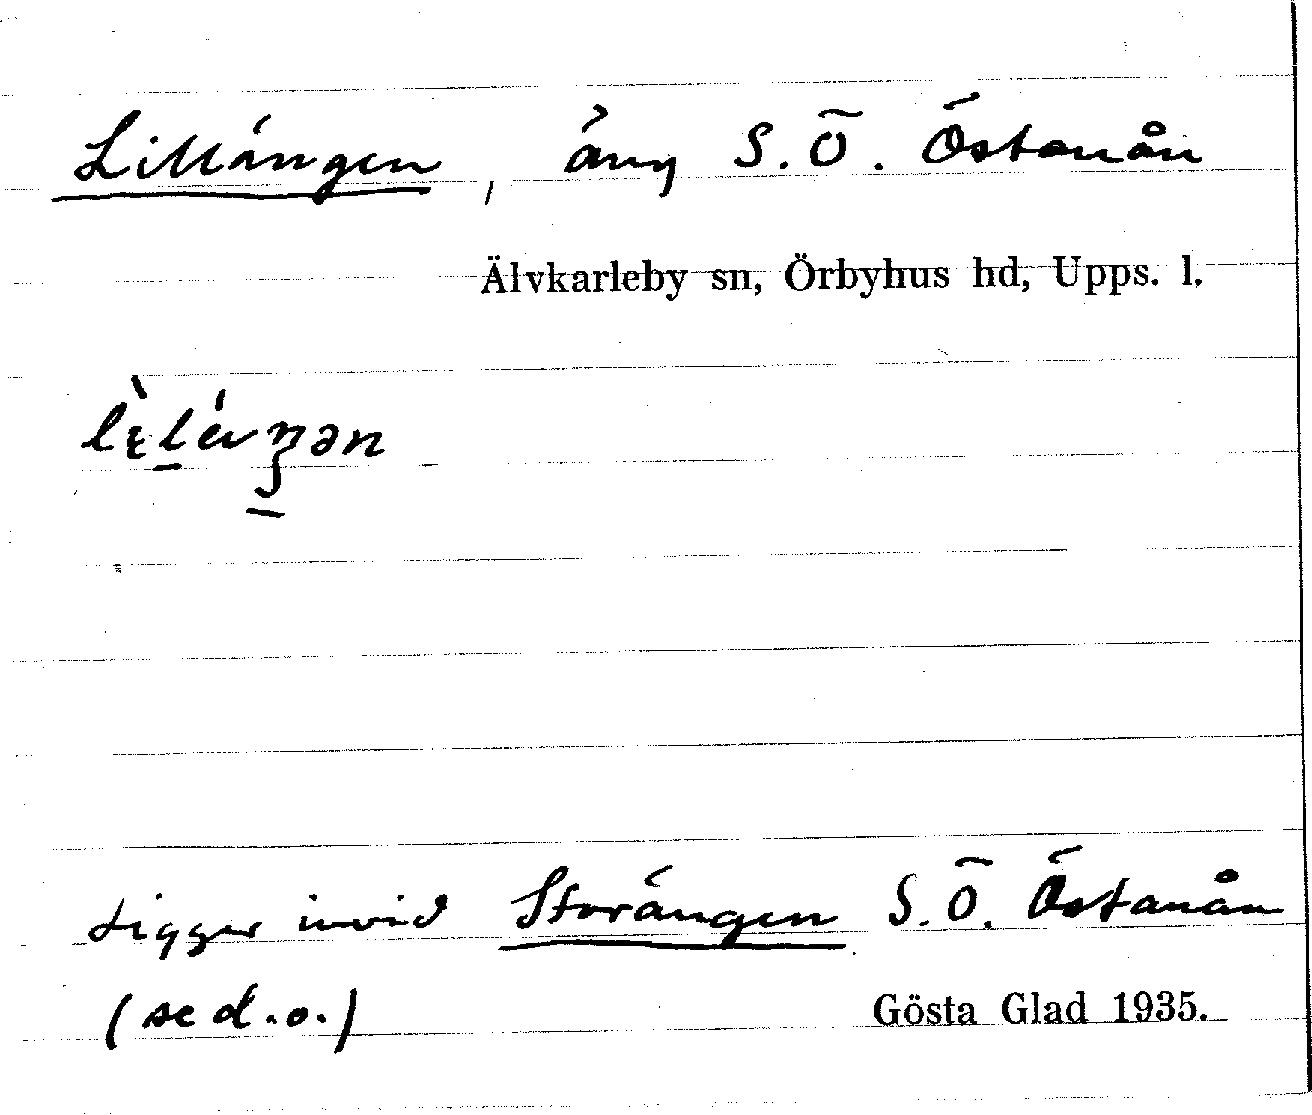 Lillängen, äng S.Ö. Östanån
Älvkarleby sn, Örbyhus hd, Upps. l.
Ligger invid Storängen S.Ö. Östanån
(se d.o.)
Gösta Glad 1935.